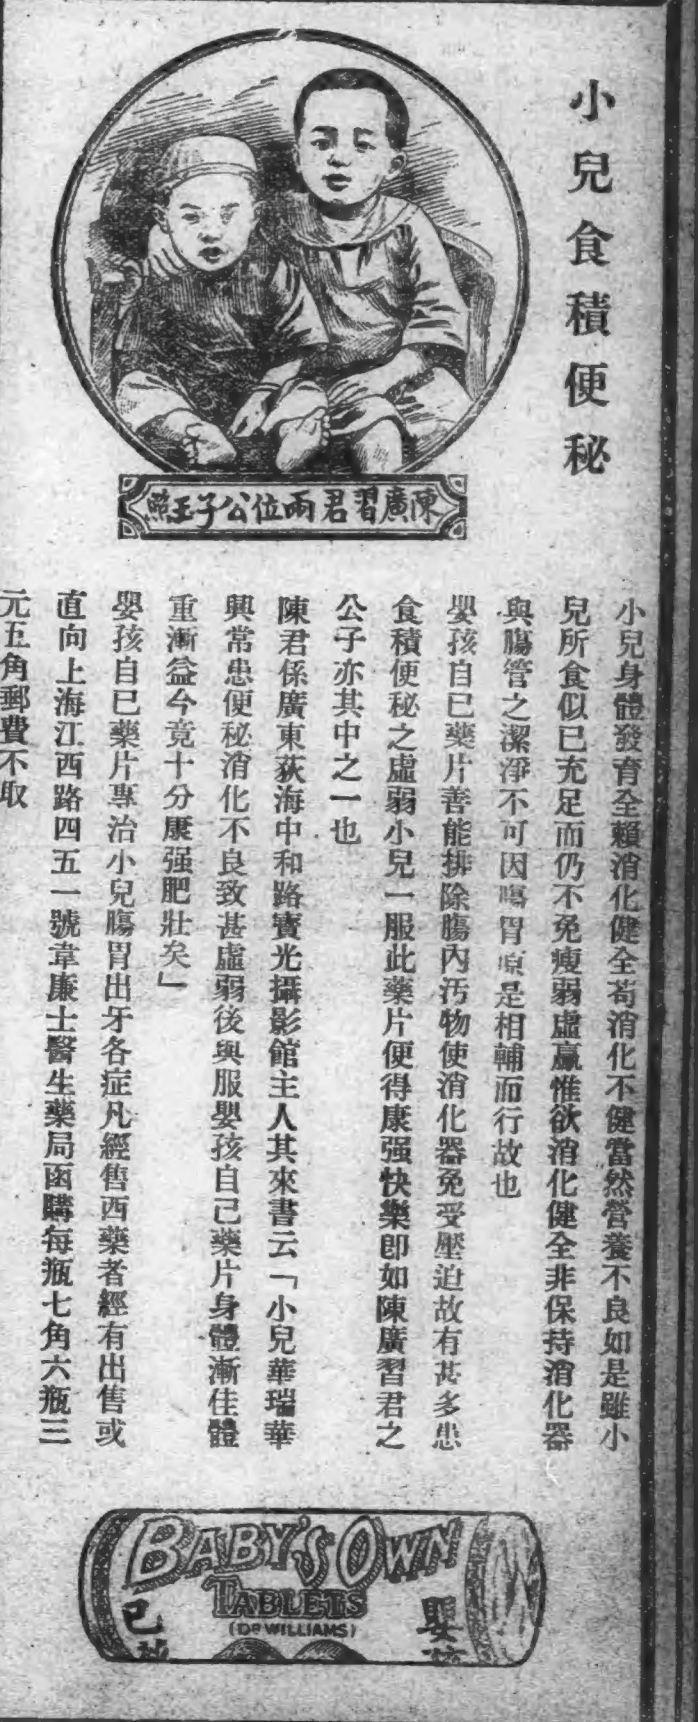 小兒食積便秘
陳廣習君兩位公子玉照
小兒身體發育全賴消化健全苟消化不健當然營養不良如是雖小
兒所食似已充足而仍不免瘦弱虛羸惟欲消化健全非保持消化器
與腸管之潔淨不可因腸胃原是相輔而行故也
嬰孩自己藥片善能排除腸內汚物使消化器免受壓迫故有甚多患
食積便秘之虛弱小兒一服此藥片便得康强快樂卽如陳廣習君之
公子亦其中之一也
陳君係廣東荻海中和路寶光攝影館主人其來書云「小兒華瑞華
興常患便秘消化不良致甚虛弱後與服嬰孩自己藥片身體漸佳體
重漸益今竟十分康强肥壯矣」
嬰孩自已藥片專治小兒腸胃出牙各症凡經售西藥者經有出售或
直向上海江西路四五一號韋廉士醫生藥局函購每瓶七角六瓶三
元五角郵費不取
BABY'S OWN
TABLETS
(DR WILLIAMS)
嬰
己